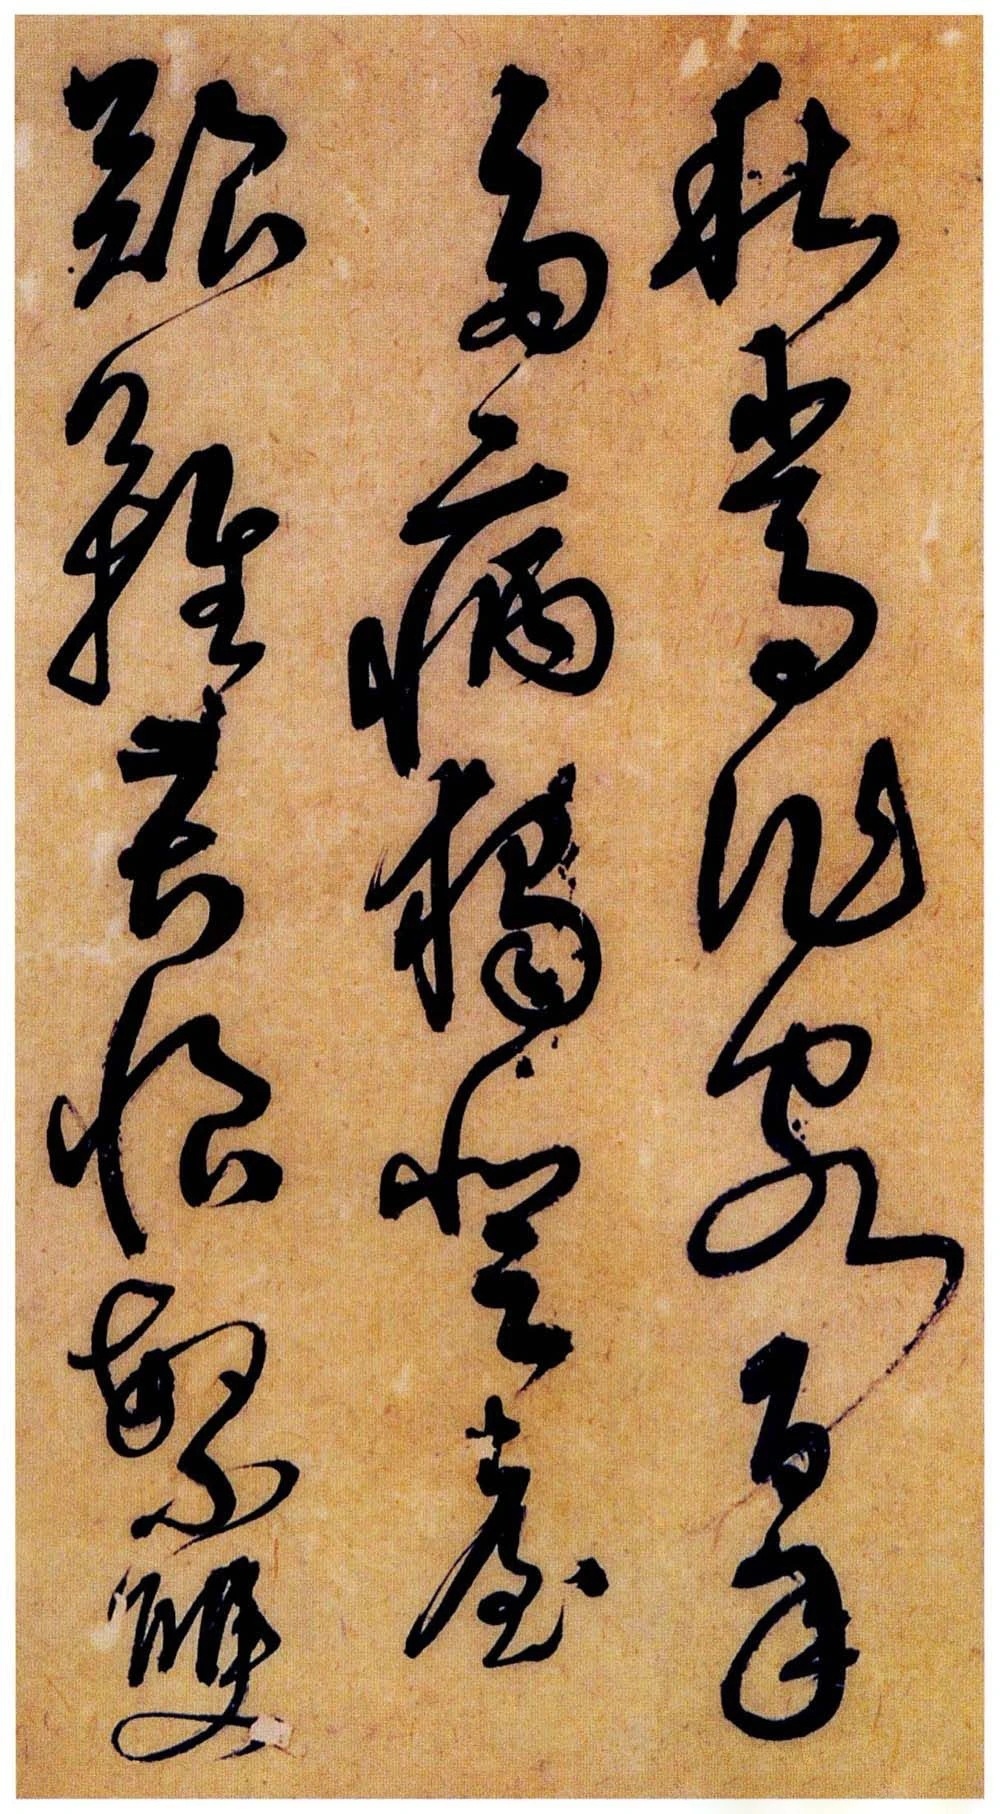 秋常作客百年
多病獨登臺
艱難苦恨繁雙